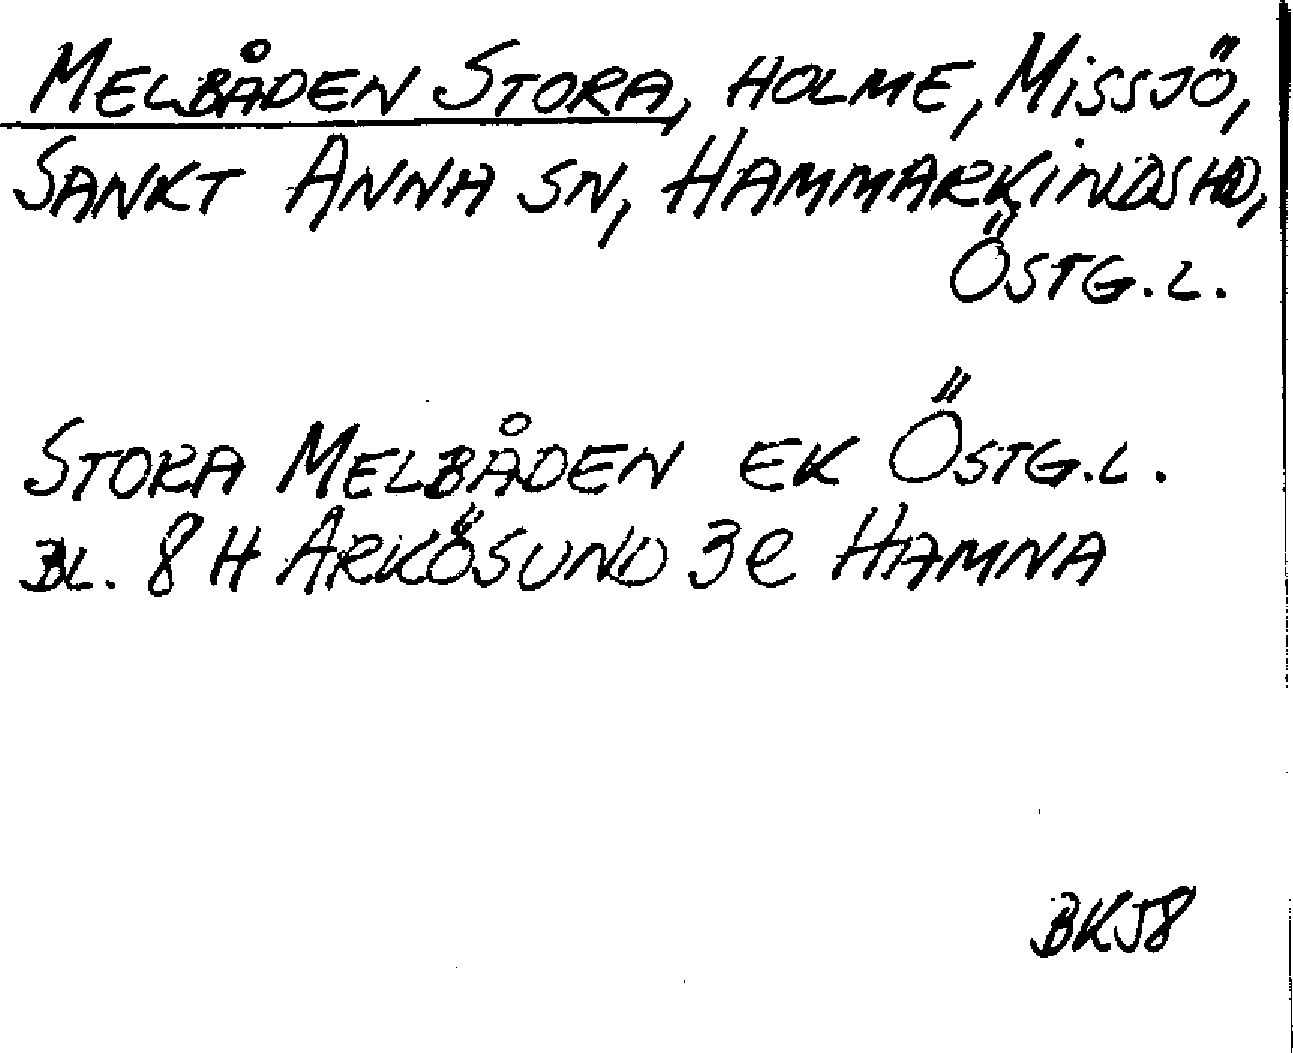 MELBÅDEN STORA, HOLME, MISSJÖ,
SANKT ANNA SN, HAMMARKINDS HD,
ÖSTG.L.
STORA MELBÅDEN EK ÖSTG.L.
BL. 8 H ARKÖSUND 3e HAMNA
BKJ8